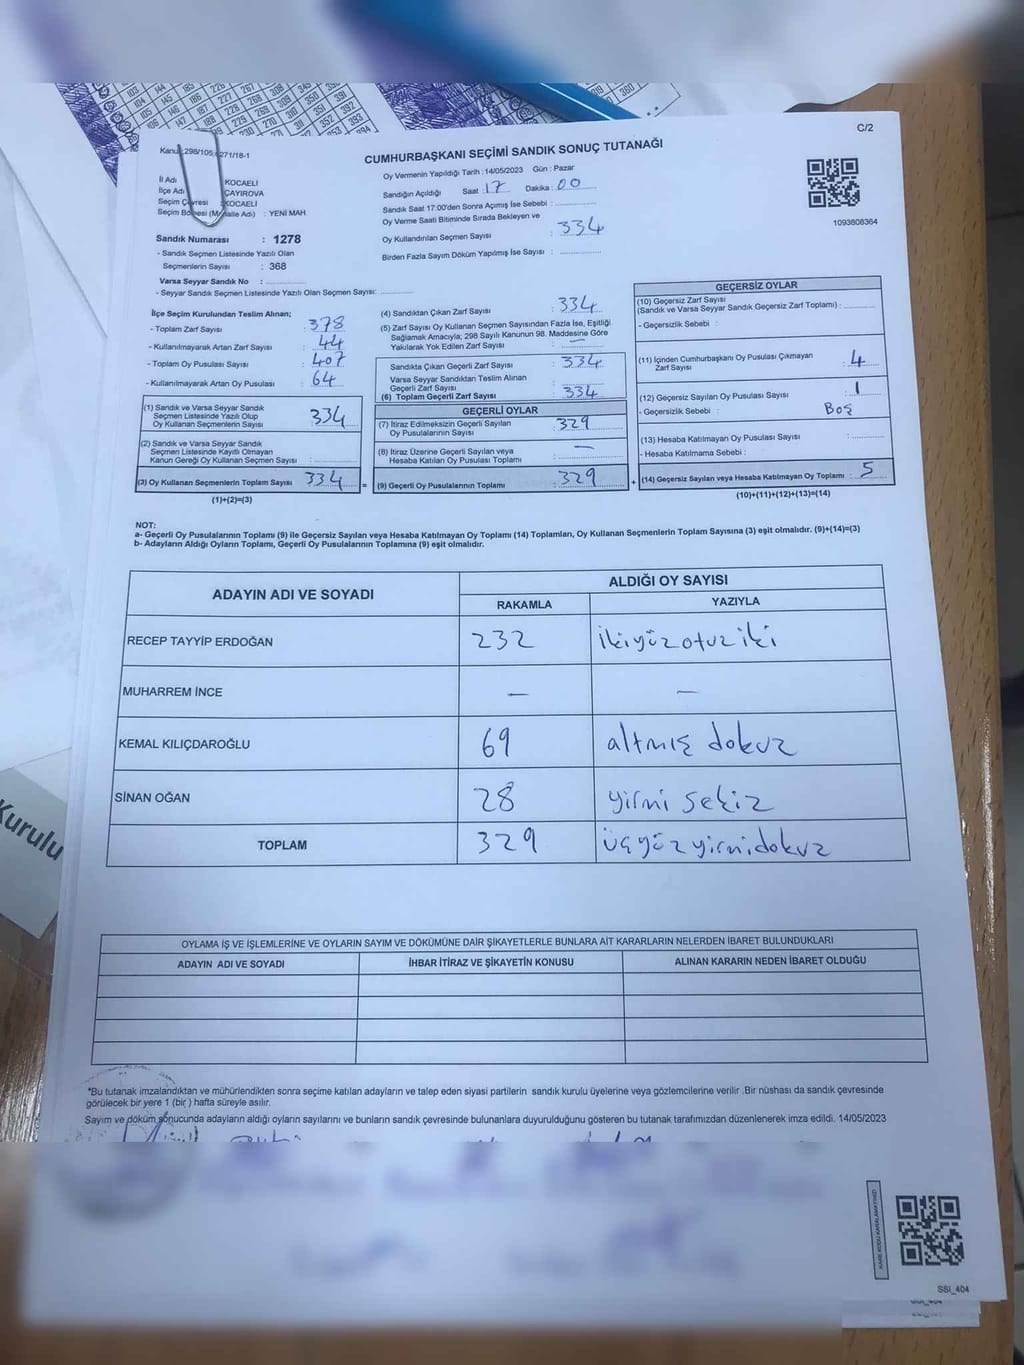 C/2
Kanu: 298/105, 271/18-1
CUMHURBAŞKANI SEÇİMİ SANDIK SONUÇ TUTANAĞI
İl Adı : KOCAELİ
İlçe Adı : ÇAYIROVA
Seçim Çevresi : KOCAELİ
Seçim Bölgesi (Mahalle Adı) : YENİ MAH.
Sandık Numarası : 1278
- Sandık Seçmen Listesinde Yazılı Olan
Seçmenlerin Sayısı : 368
Varsa Seyyar Sandık No :
- Seyyar Sandık Seçmen Listesinde Yazılı Olan Seçmen Sayısı:
Oy Vermenin Yapıldığı Tarih : 14/05/2023 Gün : Pazar
Sandığın Açıldığı Saat : 17 Dakika : 00
Sandık Saat 17:00'den Sonra Açımış İse Sebebi :
Oy Verme Saati Bitiminde Sırada Bekleyen ve
Oy Kullandırılan Seçmen Sayısı : 334
Birden Fazla Sayım Döküm Yapılmış İse Sayısı :
1093808364
İlçe Seçim Kurulundan Teslim Alınan;
- Toplam Zarf Sayısı : 378
- Kullanılmayarak Artan Zarf Sayısı : 44
- Toplam Oy Pusulası Sayısı : 407
- Kullanılmayarak Artan Oy Pusulası : 64
(1) Sandık ve Varsa Seyyar Sandık
Seçmen Listesinde Yazılı Olup
Oy Kullanan Seçmenlerin Sayısı : 334
(2) Sandık ve Varsa Seyyar Sandık
Seçmen Listesinde Kayıtlı Olmayan
Kanun Gereği Oy Kullanan Seçmen Sayısı :
(3) Oy Kullanan Seçmenlerin Toplam Sayısı : 334 =
(1)+(2)=(3)
(4) Sandıktan Çıkan Zarf Sayısı : 334
(5) Zarf Sayısı Oy Kullanan Seçmen Sayısından Fazla İse, Eşitliği
Sağlamak Amacıyla; 298 Sayılı Kanunun 98. Maddesine Göre
Yakılarak Yok Edilen Zarf Sayısı : —
Sandıkta Çıkan Geçerli Zarf Sayısı : 334
Varsa Seyyar Sandıktan Teslim Alınan
Geçerli Zarf Sayısı :
(6) Toplam Geçerli Zarf Sayısı : 334
GEÇERLİ OYLAR
(7) İtiraz Edilmeksizin Geçerli Sayılan
Oy Pusulalarının Sayısı : 329
(8) İtiraz Üzerine Geçerli Sayılan veya
Hesaba Katılan Oy Pusulası Toplamı : —
(9) Geçerli Oy Pusulalarının Toplamı : 329 +
GEÇERSİZ OYLAR
(10) Geçersiz Zarf Sayısı
(Sandık ve Varsa Seyyar Sandık Geçersiz Zarf Toplamı) :
- Geçersizlik Sebebi :
(11) İçinden Cumhurbaşkanı Oy Pusulası Çıkmayan
Zarf Sayısı : 4
(12) Geçersiz Sayılan Oy Pusulası Sayısı : 1
- Geçersizlik Sebebi : Boş
(13) Hesaba Katılmayan Oy Pusulası Sayısı :
- Hesaba Katılmama Sebebi :
(14) Geçersiz Sayılan veya Hesaba Katılmayan Oy Toplamı : 5
(10)+(11)+(12)+(13)=(14)
NOT:
a- Geçerli Oy Pusulalarının Toplamı (9) ile Geçersiz Sayılan veya Hesaba Katılmayan Oy Toplamı (14) Toplamları, Oy Kullanan Seçmenlerin Toplam Sayısına (3) eşit olmalıdır. (9)+(14)=(3)
b- Adayların Aldığı Oyların Toplamı, Geçerli Oy Pusulalarının Toplamına (9) eşit olmalıdır.
ADAYIN ADI VE SOYADI ALDIĞI OY SAYISI
RAKAMLA YAZIYLA
RECEP TAYYİP ERDOĞAN 232 ikiyüzotuziki
MUHARREM İNCE — —
KEMAL KILIÇDAROĞLU 69 altmış dokuz
SİNAN OĞAN 28 yirmi sekiz
TOPLAM 329 üçyüzyirmidokuz
OYLAMA İŞ VE İŞLEMLERİNE VE OYLARIN SAYIM VE DÖKÜMÜNE DAİR ŞİKAYETLERLE BUNLARA AİT KARARLARIN NELERDEN İBARET BULUNDUKLARI
ADAYIN ADI VE SOYADI İHBAR İTİRAZ VE ŞİKAYETİN KONUSU ALINAN KARARIN NEDEN İBARET OLDUĞU
*Bu tutanak imzalandıktan ve mühürlendikten sonra seçime katılan adayların ve talep eden siyasi partilerin sandık kurulu üyelerine veya gözlemcilerine verilir .Bir nüshası da sandık çevresinde
görülecek bir yere 1 (bir ) hafta süreyle asılır.
Sayım ve döküm sonucunda adayların aldığı oyların sayılarını ve bunların sandık çevresinde bulunanlara duyurulduğunu gösteren bu tutanak tarafımızdan düzenlenerek imza edildi. 14/05/2023
Kurulu
KARE KODU KARALAMAYINIZ!
SSI_404